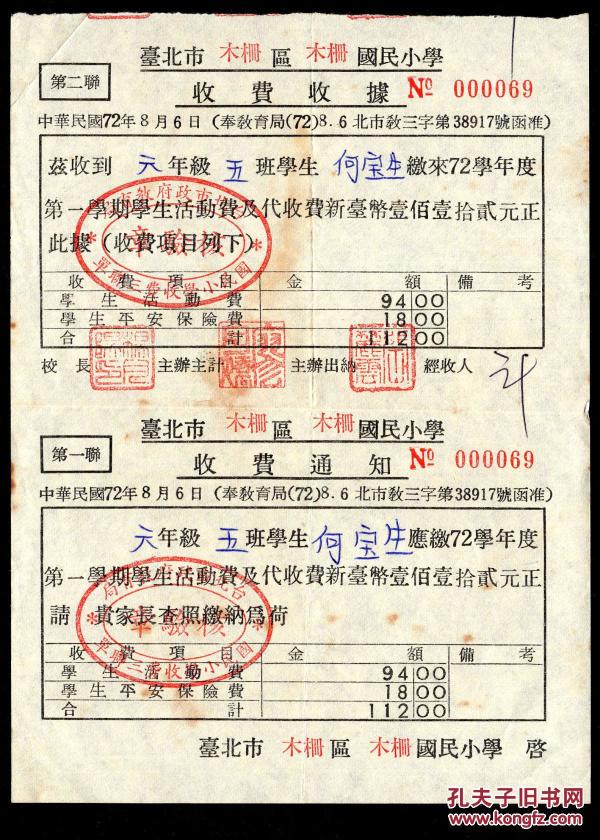 臺北市 木柵 區 木柵 國民小學
第二聯
收費收據 № 000069
中華民國72年8月6日(奉教育局(72)8.6北市教三字第38917號函准)
茲收到 元年級 五班學生 何宝生繳來72學年度
第一學期學生活動費及代收費新臺幣壹佰壹拾貳元正
此據(收費項目列下)
核驗章
國民小學收費三聯單
收費項目 金額 備考
學生活動費 94 00
學生平安保險費 18 00
合計 112 00
校長 主辦主計 主辦出納 經收人
臺北市 木柵 區 木柵 國民小學
第一聯
收費通知 № 000069
中華民國72年8月6日(奉教育局(72)8.6北市教三字第38917號函准)
元年級 五班學生 何宝生應繳72學年度
第一學期學生活動費及代收費新臺幣壹佰壹拾貳元正
請 貴家長查照繳納爲荷
核驗章
國民小學收費三聯單
收費項目 金額 備考
學生活動費 94 00
學生平安保險費 18 00
合計 112 00
臺北市 木柵 區 木柵 國民小學 啓
孔夫子旧书网
www.kongfz.com